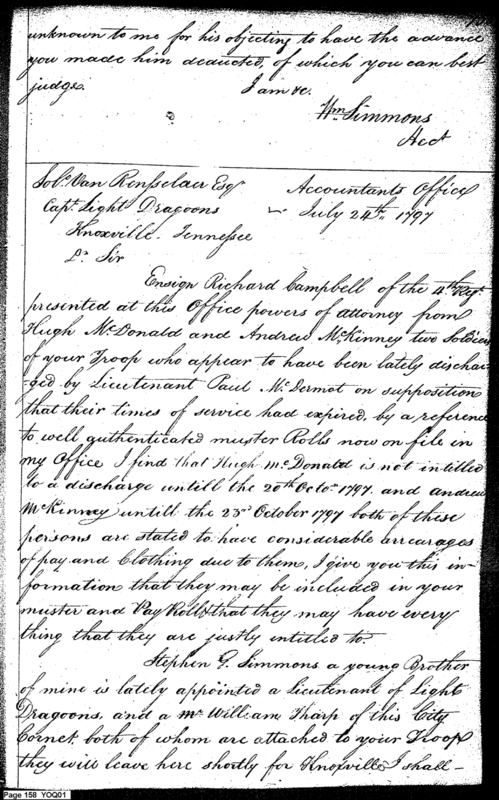 unknown to me for his objecting to have the advance
you made him deducted, of which you can best
judge. I am &c.
Wm Simmons
Acct
Sol. Van Rensselaer Esqr Accountants Office
Capt. Light Dragoons July 24th 1797
Knoxville. Tennessee
Dr Sir
Ensign Richard Campbell of the 4th Regt
presented at this Office powers of attorney from
Hugh McDonald and Andrew McKinney two Soldiers
of your Troop who appear to have been lately dischar-
-ged by Lieutenant Paul McDermot on supposition
that their times of service had expired, by a reference
to well authenticated muster Rolls now on file in
my Office I find that Hugh McDonald is not intitled
to a discharge untill the 20th Octor 1797 and Andrew
McKinney untill the 23d October 1797 both of these
persons are stated to have considerable arrearages
of pay and Clothing due to them, I give you this in-
formation that they may be included in your
muster and Pay Rolls, that they may have every
thing that they are justly entitled to.
Stephen G. Simmons a young Brother
of mine is lately appointed a Lieutenant of Light
Dragoons, and a Mr William Tharp of this City
Cornet, both of whom are attached to your Troop
they will leave here shortly for Knoxville I shall-
Page 158 YOQ01